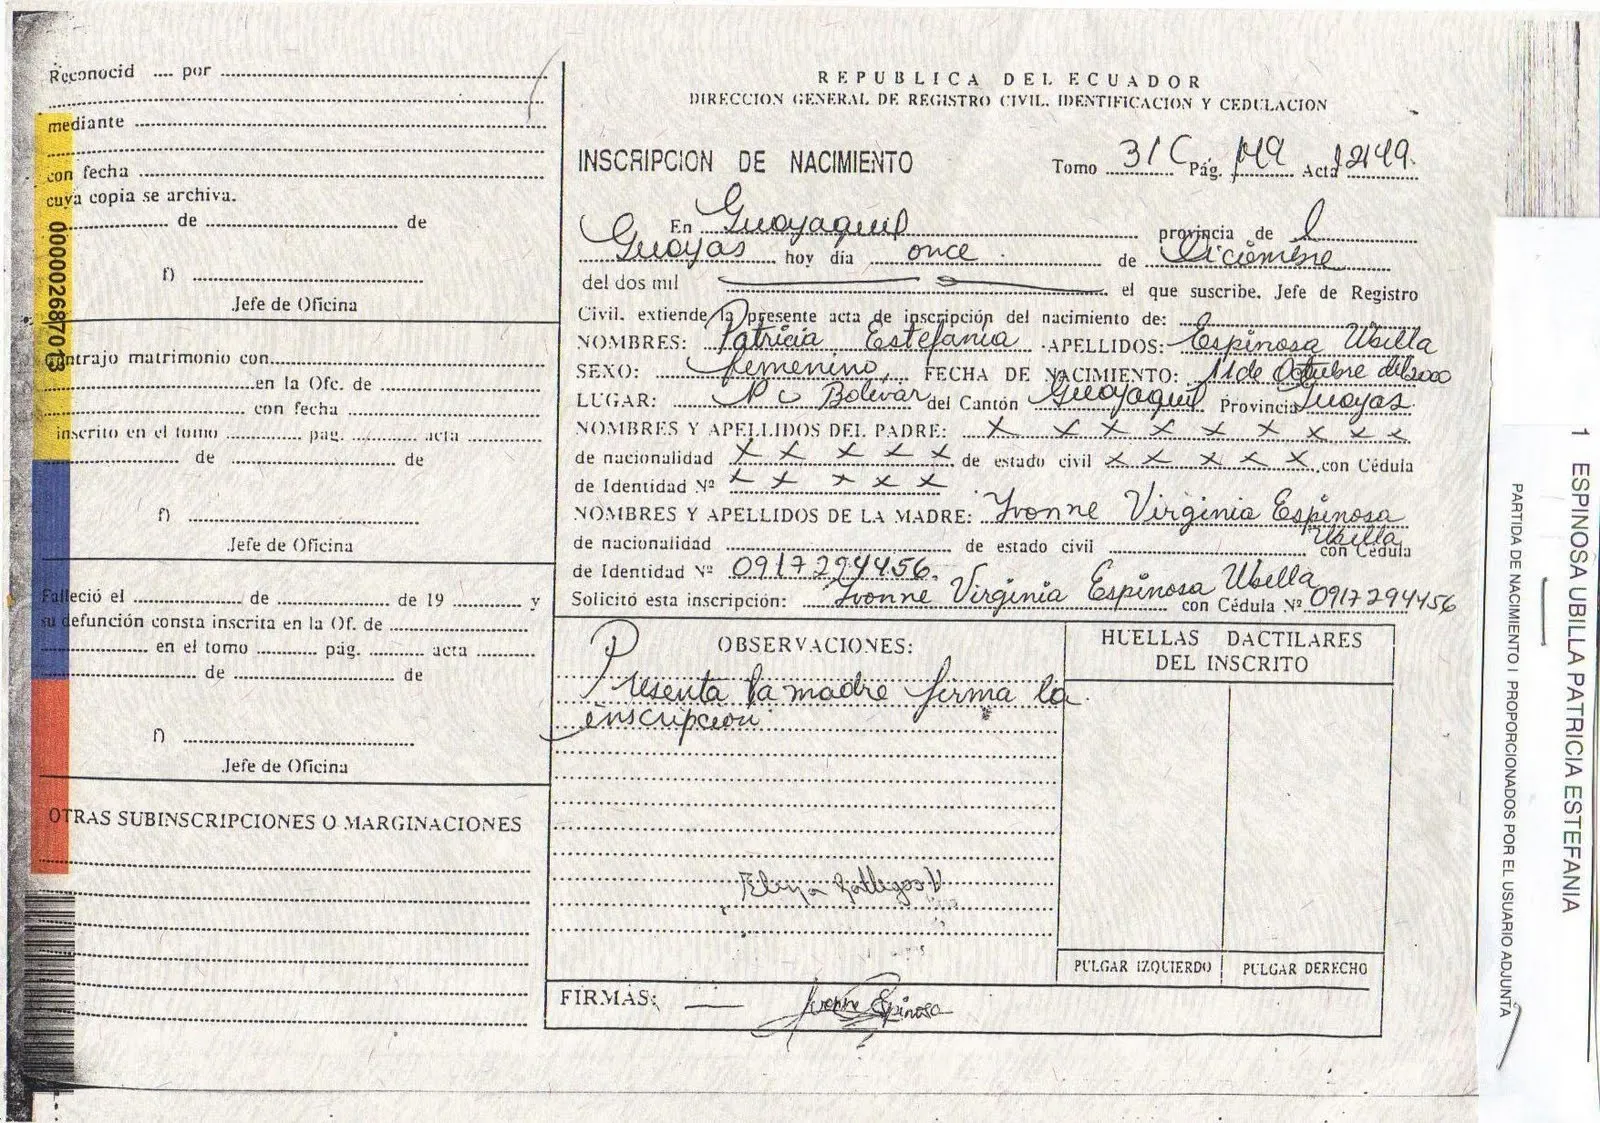 Reconocid .... por
mediante
con fecha
cuya copia se archiva.
de de
f)
Jefe de Oficina
Contrajo matrimonio con
en la Ofc. de
con fecha
inscrito en el tomo pag. acta
de de
f)
Jefe de Oficina
Falleció el de de 19 y
su defunción consta inscrita en la Of. de
en el tomo pág. acta
de de
f)
Jefe de Oficina
OTRAS SUBINSCRIPCIONES O MARGINACIONES
000002687013
REPUBLICA DEL ECUADOR
DIRECCION GENERAL DE REGISTRO CIVIL, IDENTIFICACION Y CEDULACION
INSCRIPCION DE NACIMIENTO Tomo 31C Pág. 149 Acta 12149.
En Guayaquil provincia de l
Guayas hoy día once de Diciembre
del dos mil el que suscribe, Jefe de Registro
Civil, extiende la presente acta de inscripción del nacimiento de:
NOMBRES: Patricia Estefanía APELLIDOS: Espinosa Ubilla
SEXO: femenino, FECHA DE NACIMIENTO: 11 de Octubre del 2000
LUGAR: P C Bolivar del Cantón Guayaquil Provincia Guayas
NOMBRES Y APELLIDOS DEL PADRE: X X X X X X X X X
de nacionalidad X X X X X de estado civil X X X X X con Cédula
de Identidad Nº X X X X X
NOMBRES Y APELLIDOS DE LA MADRE: Yvonne Virginia Espinosa
Ubilla
de nacionalidad de estado civil con Cédula
de Identidad Nº 0917294456.
Solicitó esta inscripción: Yvonne Virginia Espinosa Ubilla con Cédula Nº 0917294456
OBSERVACIONES:
Presenta la madre firma la
inscripcion
HUELLAS DACTILARES
DEL INSCRITO
PULGAR IZQUIERDO PULGAR DERECHO
FIRMAS: Yvonne Espinosa
1 ESPINOSA UBILLA PATRICIA ESTEFANIA
PARTIDA DE NACIMIENTO I PROPORCIONADOS POR EL USUARIO ADJUNTA